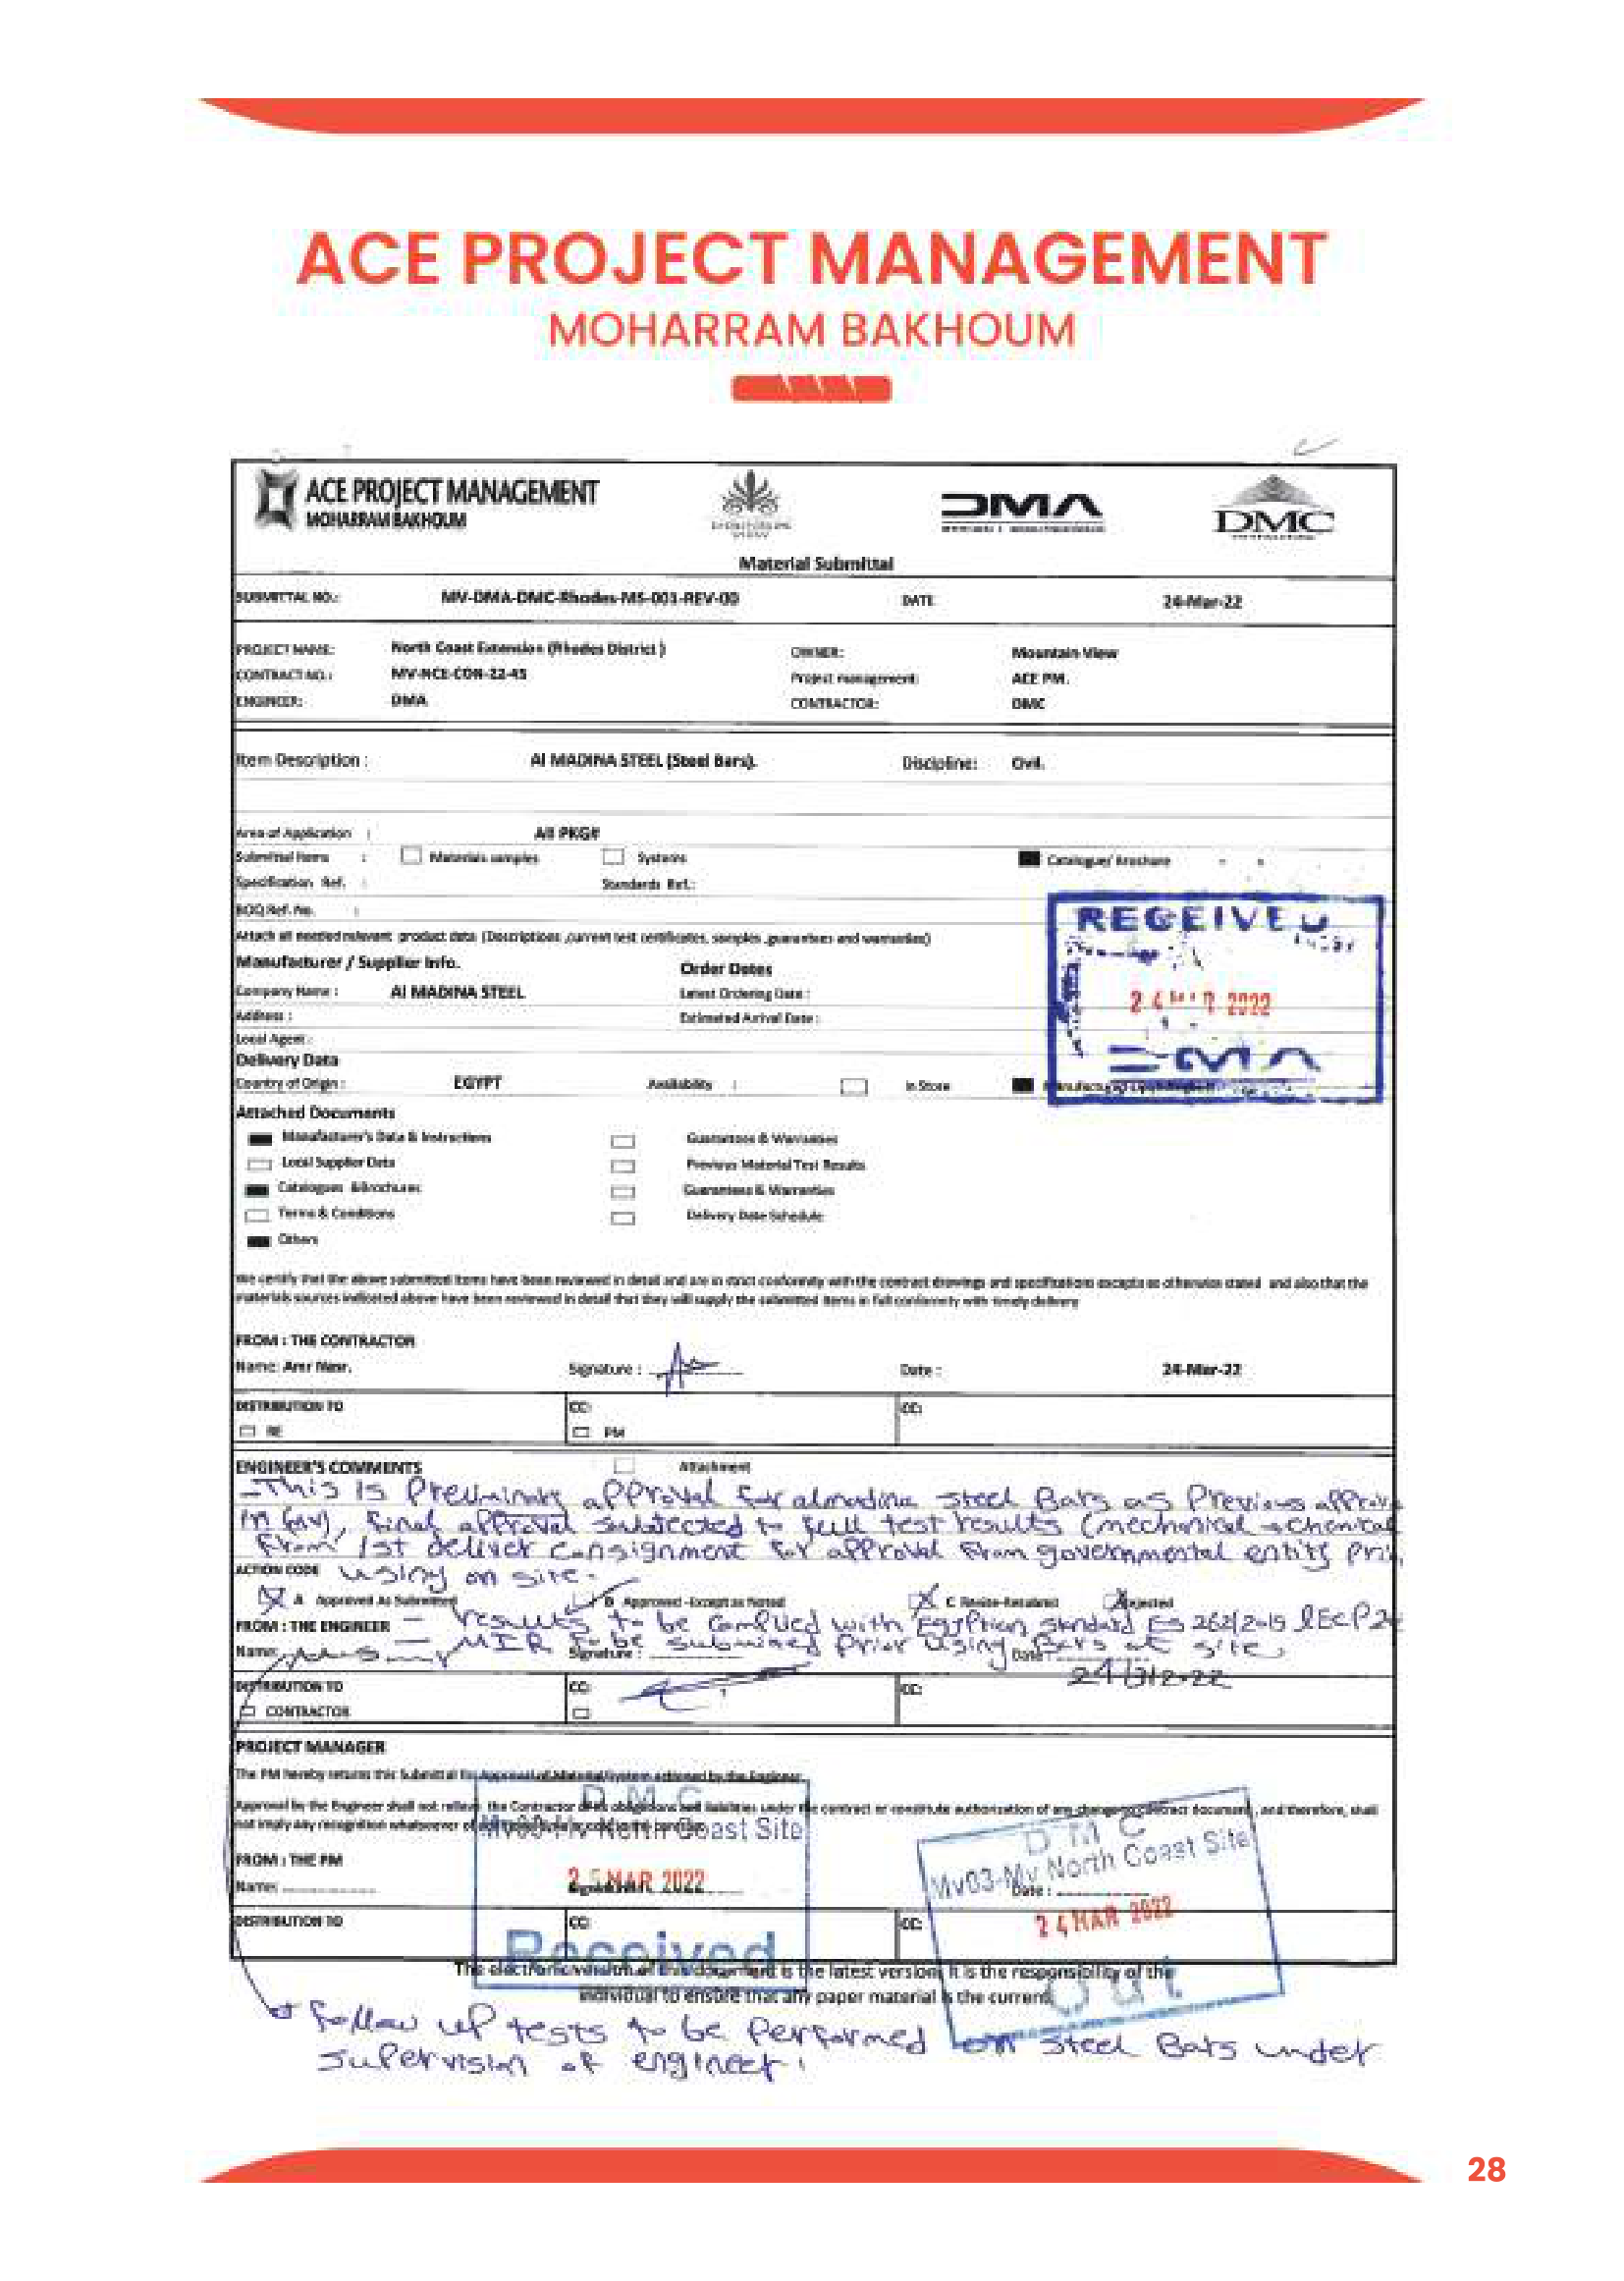 ACE PROJECT MANAGEMENT
MOHARRAM BAKHOUM
ACE PROJECT MANAGEMENT
MOHARRAM BAKHOUM
DMA
DMC
Material Submittal
SUBMITTAL NO.: MV-DMA-DMC-Rhodes-MS-001-REV-00 DATE 24-Mar-22
PROJECT NAME: North Coast Extension (Rhodes District) OWNER: Mountain View
CONTRACT NO.: MV-NCE-CON-22-45 Project management: ACE PM.
ENGINEER: DMA CONTRACTOR: DMC
Item Description : Al MADINA STEEL (Steel Bars). Discipline: Civil.
Area of Application : All PKG#
Submittal Items : Materials samples Systems Catalogue/ Brochure
Specification Ref. : Standards Ref.:
BOQ Ref. No. :
Attach all needed relevant product data (Descriptions ,current test certificates, samples ,guarantees and warranties)
RECEIVED
Manufacturer / Supplier Info. Order Dates
Company Name : Al MADINA STEEL Latest Ordering Date :
2022
Address : Estimated Arrival Date :
Local Agent :
Delivery Data
DMA
Country of Origin : EGYPT Availability : In Store
Attached Documents
Manufacturer's Data & Instructions Guarantees & Warranties
Local Supplier Data Previous Material Test Results
Catalogues &Brochures Guarantees & Warranties
Terms & Conditions Delivery Date Schedule
Others
We certify that the above submitted items have been reviewed in detail and are in strict conformity with the contract drawings and specifications except as otherwise stated and also that the
materials sources indicated above have been reviewed in detail that they will supply the submitted items in full conformity with timely delivery
FROM : THE CONTRACTOR
Name: Amr Nasr. Signature : Date : 24-Mar-22
DISTRIBUTION TO CC: CC:
RE PM
ENGINEER'S COMMENTS Attachment
- This is Preliminary approval for almadina steel Bars as Previous
final approval subjected to full test results (mechanical + chemical
From 1st deliver consignment for approval from governmental entity
ACTION CODE using on site.
A Approved As Submitted B Approved -Except as Noted C Revise-Resubmit Rejected
FROM : THE ENGINEER - results to be complied with Egyptian standard ES 262/2015
Name: - MIR to be submitted prior using Bars at site
Signature : Date :
24/3/2022
DISTRIBUTION TO CC: CC:
CONTRACTOR
PROJECT MANAGER
The PM hereby returns this Submittal for Approval of Material/system actioned by the Engineer
Approval by the Engineer shall not relieve the Contractor of its obligations and liabilities under the contract or constitute authorization of any change to contract document, and therefore, shall
not imply any recognition whatsoever of
D M C
North Coast Site
25 MAR 2022
Received
D M C
Mv03-Mv North Coast Site
24 MAR 2022
Out
FROM : THE PM
Name: Date :
DISTRIBUTION TO CC: CC:
The electronic version of this document is the latest version. It is the responsibility of the
individual to ensure that any paper material is the current
Follow up tests to be Performed on steel Bars under
supervision of engineer.
28